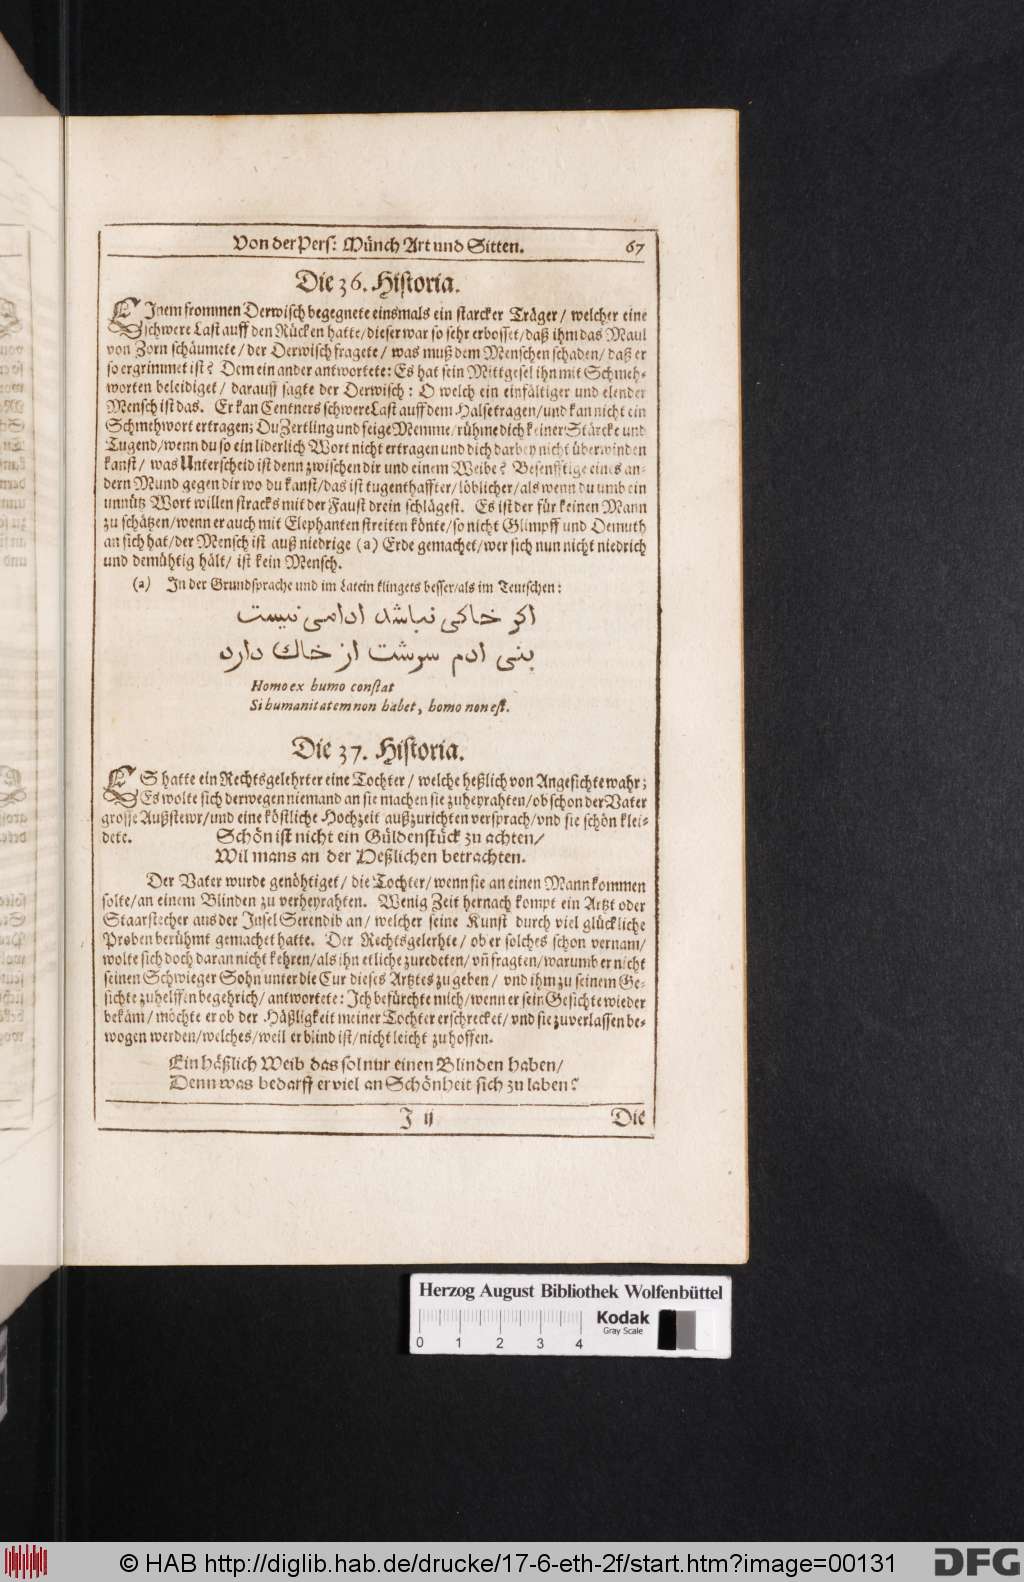 Von der Pers: Münch Art und Sitten. 67
Die 36. Historia.
EJnem frommen Derwisch begegnete einsmals ein starcker Träger / welcher eine
schwere Last auff den Rücken hatte/dieser war so sehr erbosset/daß ihm das Maul
von Zorn schäumete/der Derwisch fragete/ was muß dem Menschen schaden/ daß er
so ergrimmet ist? Dem ein ander antwortete: Es hat sein Mittgesel ihn mit Schmeh-
worten beleidiget/ darauff sagte der Derwisch: O welch ein einfältiger und elender
Mensch ist das. Er kan Centners schwere Last auff dem Halse tragen/und kan nicht ein
Schmehwort ertragen; Du Zertling und feige Memme/rühme dich keiner Stärcke und
Tugend/wenn du so ein liederlich Wort nicht ertragen und dich darbey nicht überwinden
kanst/ was Unterscheid ist denn zwischen dir und einem Weibe? Besenfftige eines an-
dern Mund gegen dir wo du kanst/das ist tugenthaffter/löblicher/als wenn du umb ein
unnütz Wort willen stracks mit der Faust drein schlägest. Es ist der für keinen Mann
zu schätzen/wenn er auch mit Elephanten streiten könte/so nicht Glimpff und Demuth
an sich hat/der Mensch ist auß niedrige (a) Erde gemachet/wer sich nun nicht niedrich
und demühtig hält/ ist kein Mensch.
(a) In der Grundsprache und im Latein klingets besser/als im Teutschen:
اكر خاكي نباشد ادامي نيست
بني ادم سرشت از خاك دارد
Homo ex humo constat
Si humanitatem non habet, homo non est.
Die 37. Historia.
ES hatte ein Rechtsgelehrter eine Tochter/ welche heßlich von Angesichte wahr;
Es wolte sich derwegen niemand an sie machen sie zuheyrahten/ob schon der Vater
grosse Außstewr/und eine köstliche Hochzeit außzurichten versprach/vnd sie schön klei-
dete. Schön ist nicht ein Güldenstück zu achten/
Wil mans an der Heßlichen betrachten.
Der Vater wurde genöhtiget/ die Tochter/wenn sie an einen Mann kommen
solte/an einem Blinden zu verheyrahten. Wenig Zeit hernach kompt ein Artzt oder
Staarstecher aus der Insel Serendib an/ welcher seine Kunst durch viel glückliche
Proben berühmt gemachet hatte. Der Rechtsgelerhte/ ob er solches schon vernam/
wolte sich doch daran nicht kehren/als ihn etliche zuredeten/vñ fragten/warumb er nicht
seinen Schwieger Sohn unter die Cur dieses Artztes zu geben/ vnd ihm zu seinem Ge-
sichte zu helffen begehrich/antwortete: Ich befürchte mich/wenn er sein Gesichte wieder
bekäm/ möchte er ob der Häßligkeit meiner Tochter erschrecket/ vnd sie zuverlassen be-
wogen werden/welches/weil er blind ist/nicht leicht zu hoffen.
Ein häßlich Weib das sol nur einen Blinden haben/
Denn was bedarff er viel an Schönheit sich zu laben?
J ij Die
Herzog August Bibliothek Wolfenbüttel
Kodak
Gray Scale
0 1 2 3 4
© HAB http://diglib.hab.de/drucke/17-6-eth-2f/start.htm?image=00131
DFG